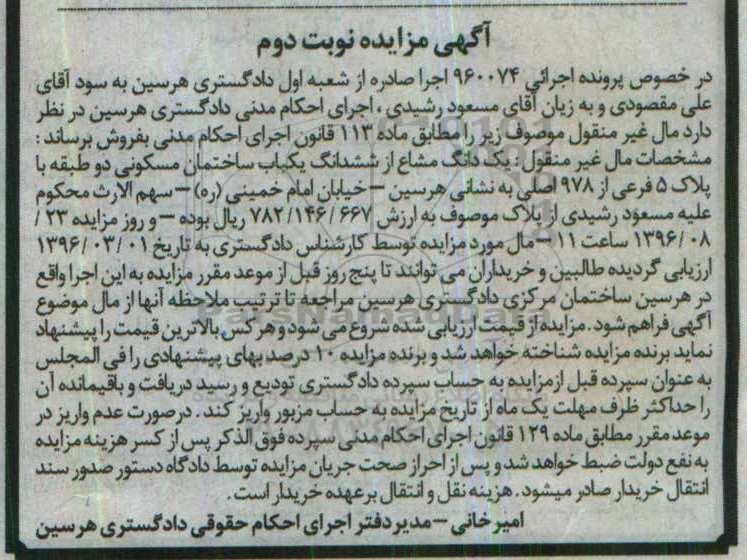 آگهی مزایده نوبت دوم
در خصوص پرونده اجرائی ۹۶۰۰۷۴ اجرا صادره از شعبه اول دادگستری هرسین به سود آقای
علی مقصودی و به زیان آقای مسعود رشیدی ، اجرای احکام مدنی دادگستری هرسین در نظر
دارد مال غیر منقول موصوف زیر را مطابق ماده ۱۱۳ قانون اجرای احکام مدنی بفروش برساند :
مشخصات مال غیر منقول : یک دانگ مشاع از ششدانگ یکباب ساختمان مسکونی دو طبقه با
پلاک ۵ فرعی از ۹۷۸ اصلی به نشانی هرسین – خیابان امام خمینی (ره) – سهم الارث محکوم
علیه مسعود رشیدی از پلاک موصوف به ارزش ۷۸۲/۱۴۶/۶۶۷ ریال بوده – و روز مزایده ۲۳ /
۱۳۹۶/۰۸ ساعت ۱۱ – مال مورد مزایده توسط کارشناس دادگستری به تاریخ ۱۳۹۶/۰۳/۰۱
ارزیابی گردیده طالبین و خریداران می توانند تا پنج روز قبل از موعد مقرر مزایده به این اجرا واقع
در هرسین ساختمان مرکزی دادگستری هرسین مراجعه تا ترتیب ملاحظه آنها از مال موضوع
آگهی فراهم شود . مزایده از قیمت ارزیابی شده شروع می شود و هر کس بالاترین قیمت را پیشنهاد
نماید برنده مزایده شناخته خواهد شد و برنده مزایده ۱۰ درصد بهای پیشنهادی را فی المجلس
به عنوان سپرده قبل از مزایده به حساب سپرده دادگستری تودیع و رسید دریافت و باقیمانده آن
را حداکثر ظرف مهلت یک ماه از تاریخ مزایده به حساب مزبور واریز کند . درصورت عدم واریز در
موعد مقرر مطابق ماده ۱۲۹ قانون اجرای احکام مدنی سپرده فوق الذکر پس از کسر هزینه مزایده
به نفع دولت ضبط خواهد شد و پس از احراز صحت جریان مزایده توسط دادگاه دستور صدور سند
انتقال خریدار صادر میشود . هزینه نقل و انتقال بر عهده خریدار است .
امیرخانی – مدیر دفتر اجرای احکام حقوقی دادگستری هرسین
ParsNamadData